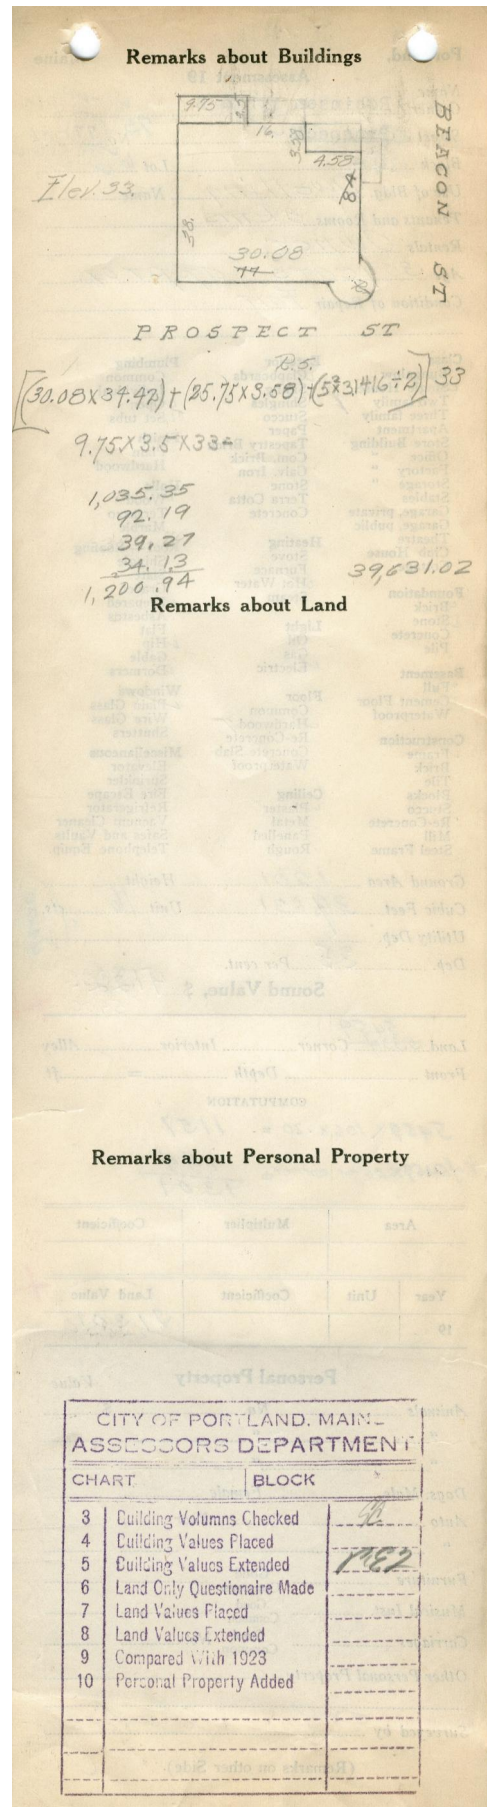 Remarks about Buildings
9.75
16.
3.58
4.58
BEACON ST
Elev. 33
38.
30.08
PROSPECT ST
[(30.08X34.42)+(25.75X3.58)+(5²X3.1416÷2)] 33
9.75X3.5X33=
1,035.35
92.19
39.27
34.13
1,200.94
39,631.02
Remarks about Land
Remarks about Personal Property
CITY OF PORTLAND, MAINE
ASSESSORS DEPARTMENT
CHART BLOCK
3 Building Volumns Checked
4 Building Values Placed
5 Building Values Extended
6 Land Only Questionaire Made
7 Land Values Placed
8 Land Values Extended
9 Compared With 1923
10 Personal Property Added